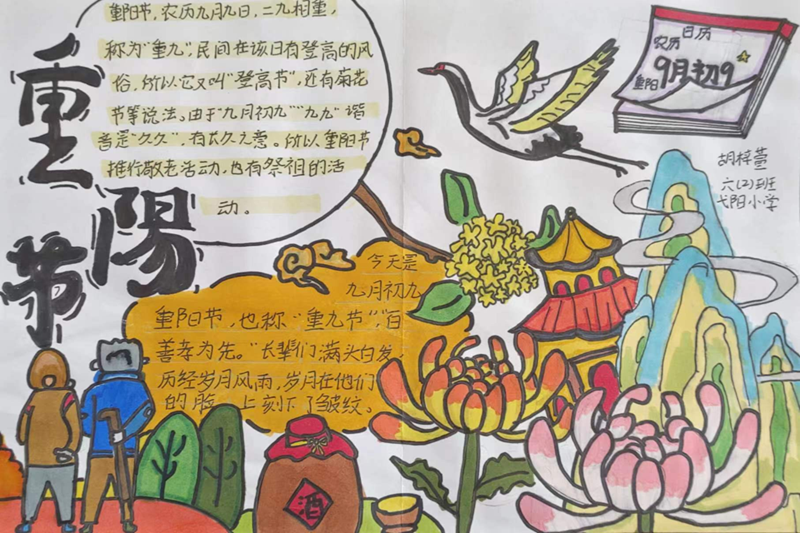 重阳节
重阳节，农历九月九日，二九相重，
称为“重九”，民间在该日有登高的风
俗，所以它又叫“登高节”，还有菊花
节等说法。由于“九月初九”“九九”谐
音是“久久”，有长久之意。所以重阳节
推行敬老活动，也有祭祖的活
动。
日历
农历
9月初9
重阳
胡梓萱
六(2)班
弋阳小学
今天是
九月初九
重阳节，也称“重九节”，“百
善孝为先。”长辈们满头白发，
历经岁月风雨，岁月在他们
的脸上刻下了皱纹。
酒